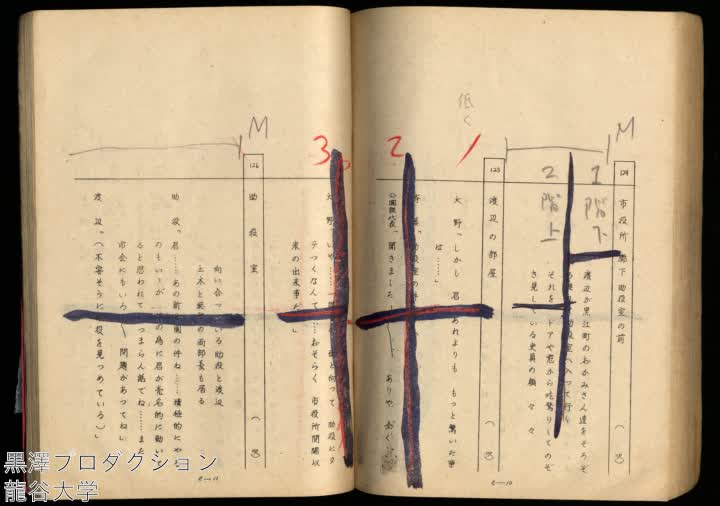 M
124
市役所 廊下 助役室の前
1階下
2階上
渡辺が黒江町のおかみさん達をぞろぞ
助役室へ入って行く
それを ドアや窓から吃驚りしてのぞ
き見している吏員の顔 々 々
e—10
125
渡辺の部屋
低く
1
大野「しかし 君 あれよりも もっと驚いた事
は……」
2
公園課代表「聞きました
ありや 全く
3
大野「いや
テつくなんて…… おそらく 市役所開闢以
来の出来事だ
M
126
助役室
向い合っている助役と渡辺
土木と の両部長も居る
助役「君……あの 園の件ね……積極的にやる
のもいゝが の為に君が売名的に動い
ると思われて つまらん話でね……また
市会にもいろ〱 問題があってね」
渡辺「(不安そうに 役を見つめている)」
e—11
黒澤プロダクション
龍谷大学